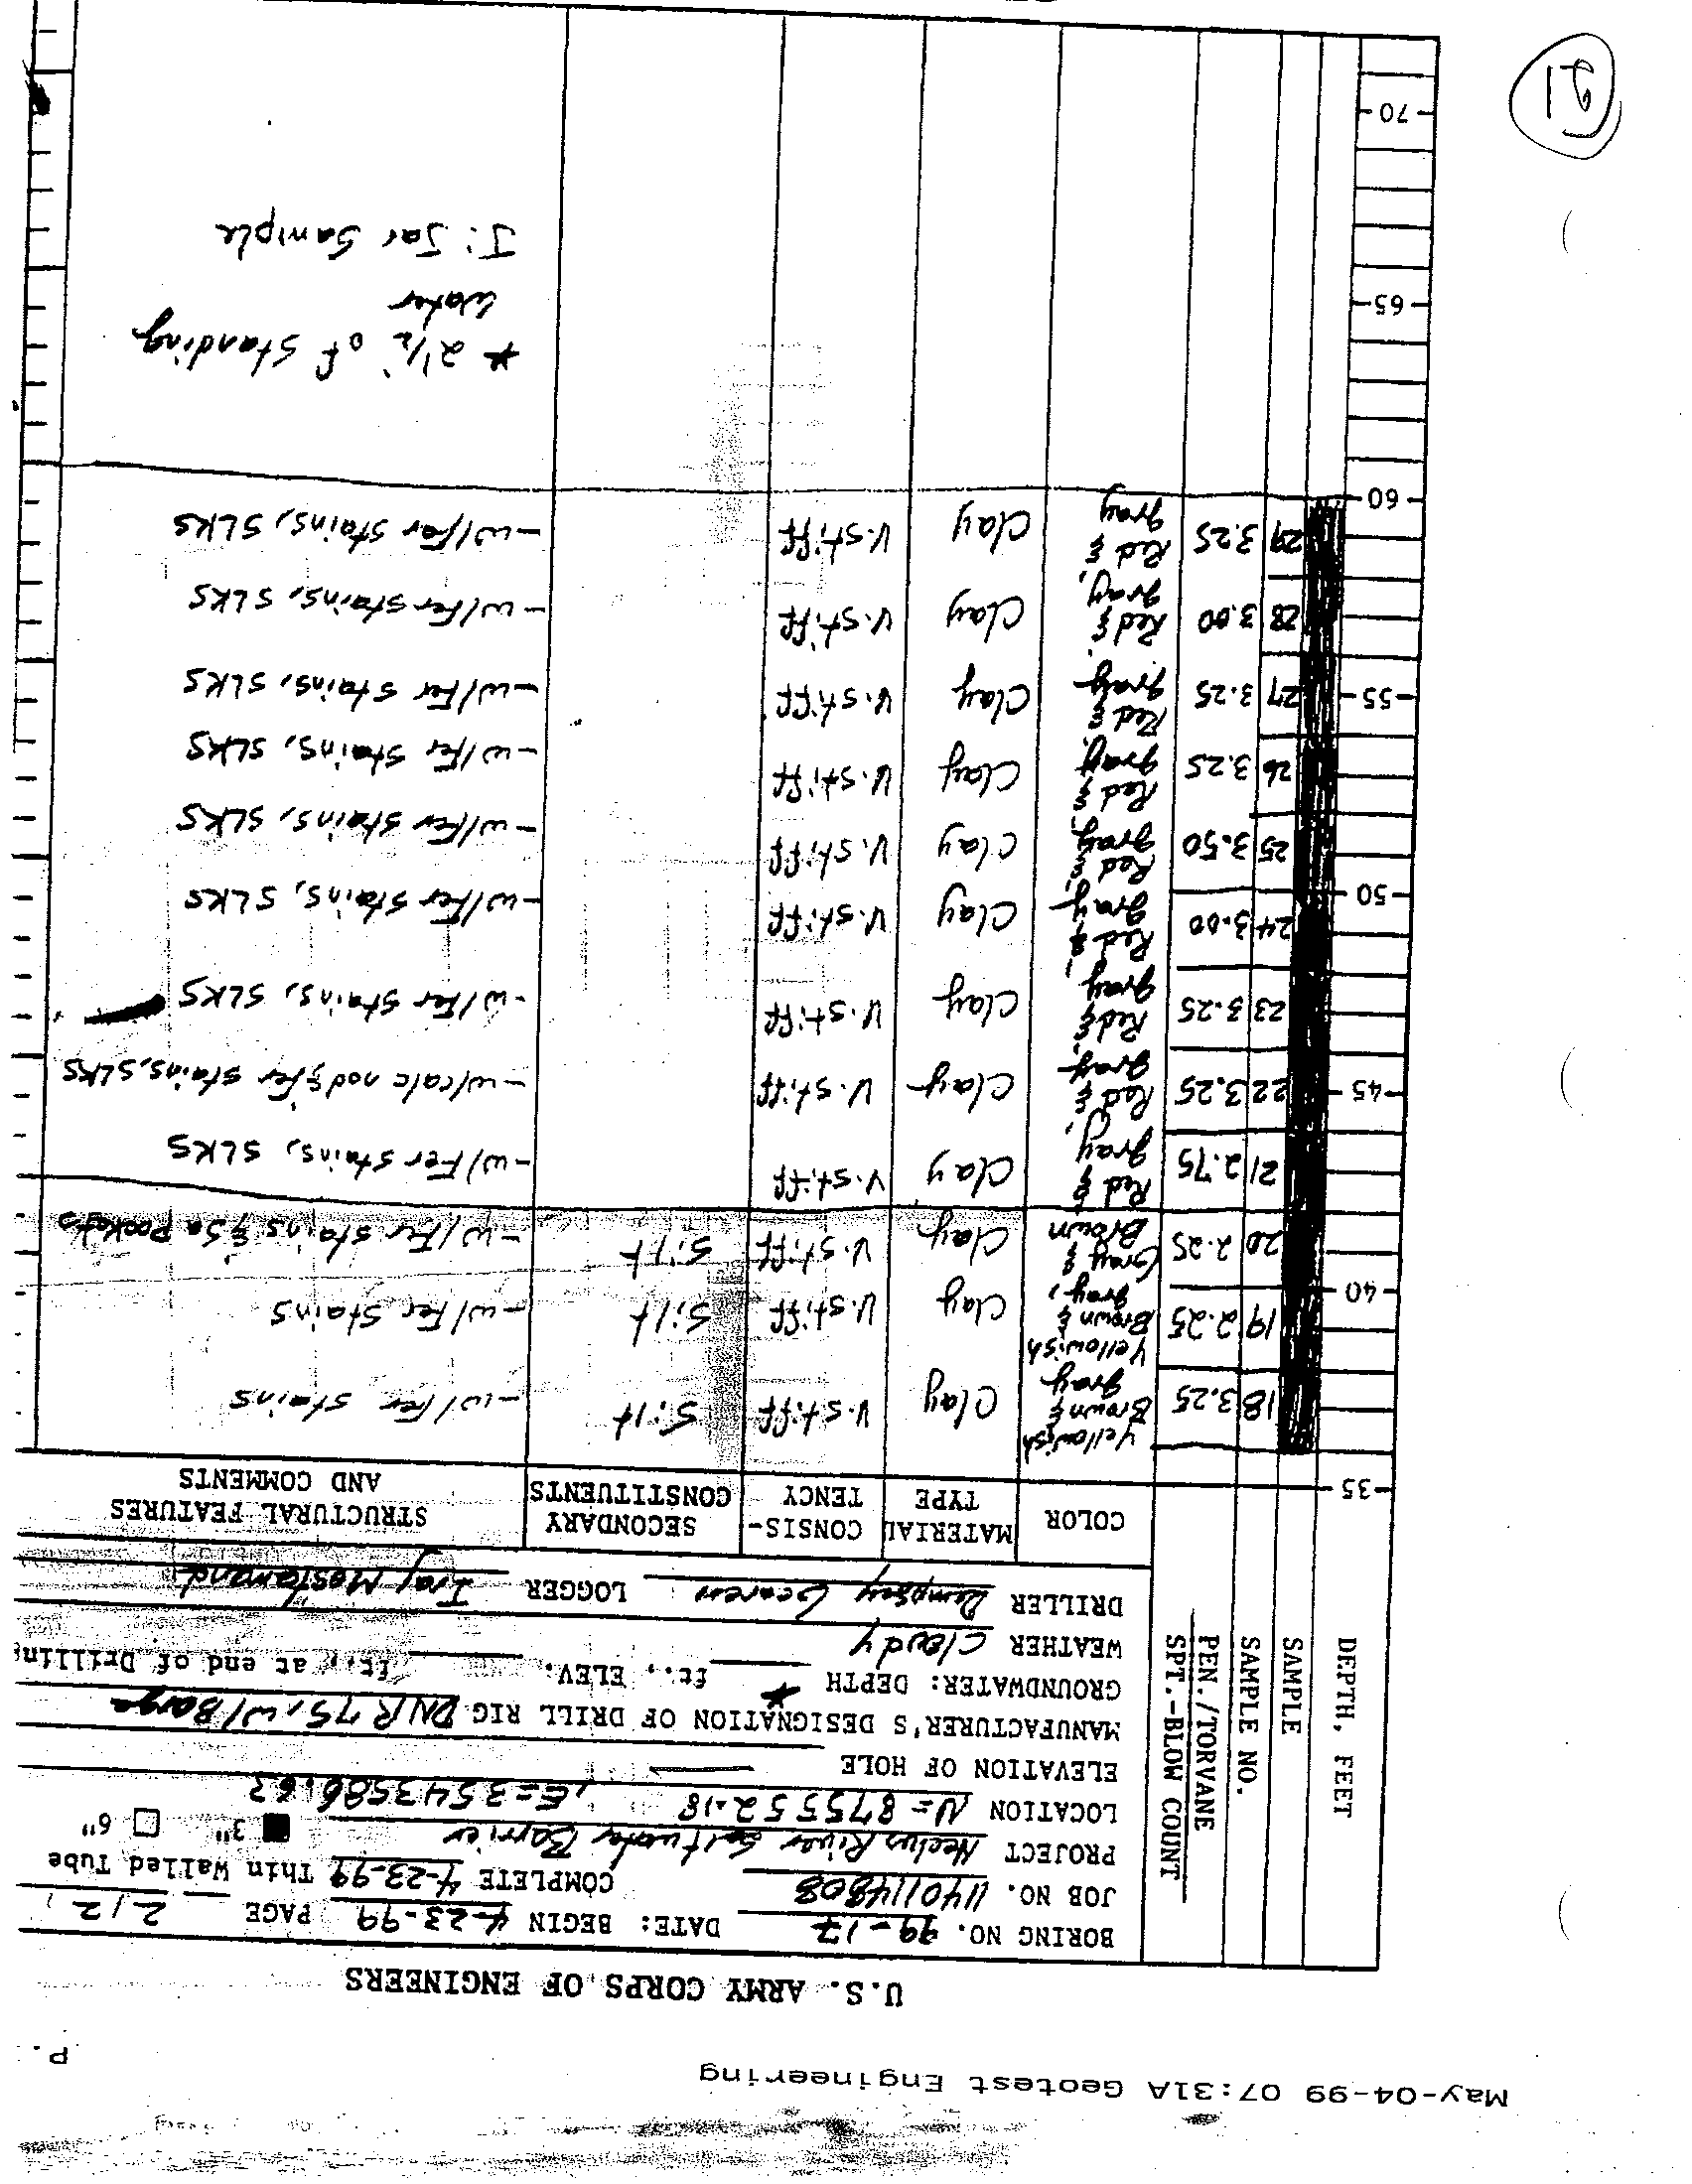 May-04-99 07:31A Geotest Engineering
P.
U.S. ARMY CORPS OF ENGINEERS
BORING NO. 99-17 DATE: BEGIN 4-23-99 PAGE 2/2
JOB NO. 1140114808 COMPLETE 4-23-99 Thin Walled Tube
PROJECT Neches River Saltwater Barrier 3" 6"
LOCATION N=875552.18, E=3543586.63
ELEVATION OF HOLE —
MANUFACTURER'S DESIGNATION OF DRILL RIG DNR 75, w/Barge
GROUNDWATER: DEPTH * ft., ELEV. ft., at end of Drilling
WEATHER Cloudy
DRILLER Dempsey Gearen LOGGER Iraj Mostamand
DEPTH, FEET
SAMPLE
SAMPLE NO.
PEN./TORVANE
SPT.-BLOW COUNT
COLOR
MATERIAL TYPE
CONSIS-TENCY
SECONDARY CONSTITUENTS
STRUCTURAL FEATURES AND COMMENTS
35
18 3.25 Yellowish Brown & gray Clay V.stiff Silt -w/fer stains
19 2.25 Yellowish Brown & gray, Clay V.stiff Silt -w/fer stains
40
20 2.25 Gray & Brown Clay V.stiff Silt -w/Fer stains & Sa Pockets
21 2.75 Red & gray, Clay V.stiff -w/Fer stains, SLKS
45
22 3.25 Red & gray, Clay V.stiff -w/calc nod & fer stains, SLKS
23 3.25 Red & gray Clay V.stiff -w/Fer stains, SLKS
24 3.00 Red & gray Clay V.stiff -w/Fer stains, SLKS
50
25 3.50 Red & gray Clay V.stiff -w/Fer stains, SLKS
26 3.25 Red & gray Clay V.stiff -w/Fer stains, SLKS
55
27 3.25 Red & gray Clay V.stiff -w/Fer stains, SLKS
28 3.00 Red & gray, Clay V.stiff -w/fer stains, SLKS
29 3.25 Red & gray Clay V.stiff -w/Fer stains, SLKS
60
* 2½' of Standing
Water
65
J: Jar Sample
70